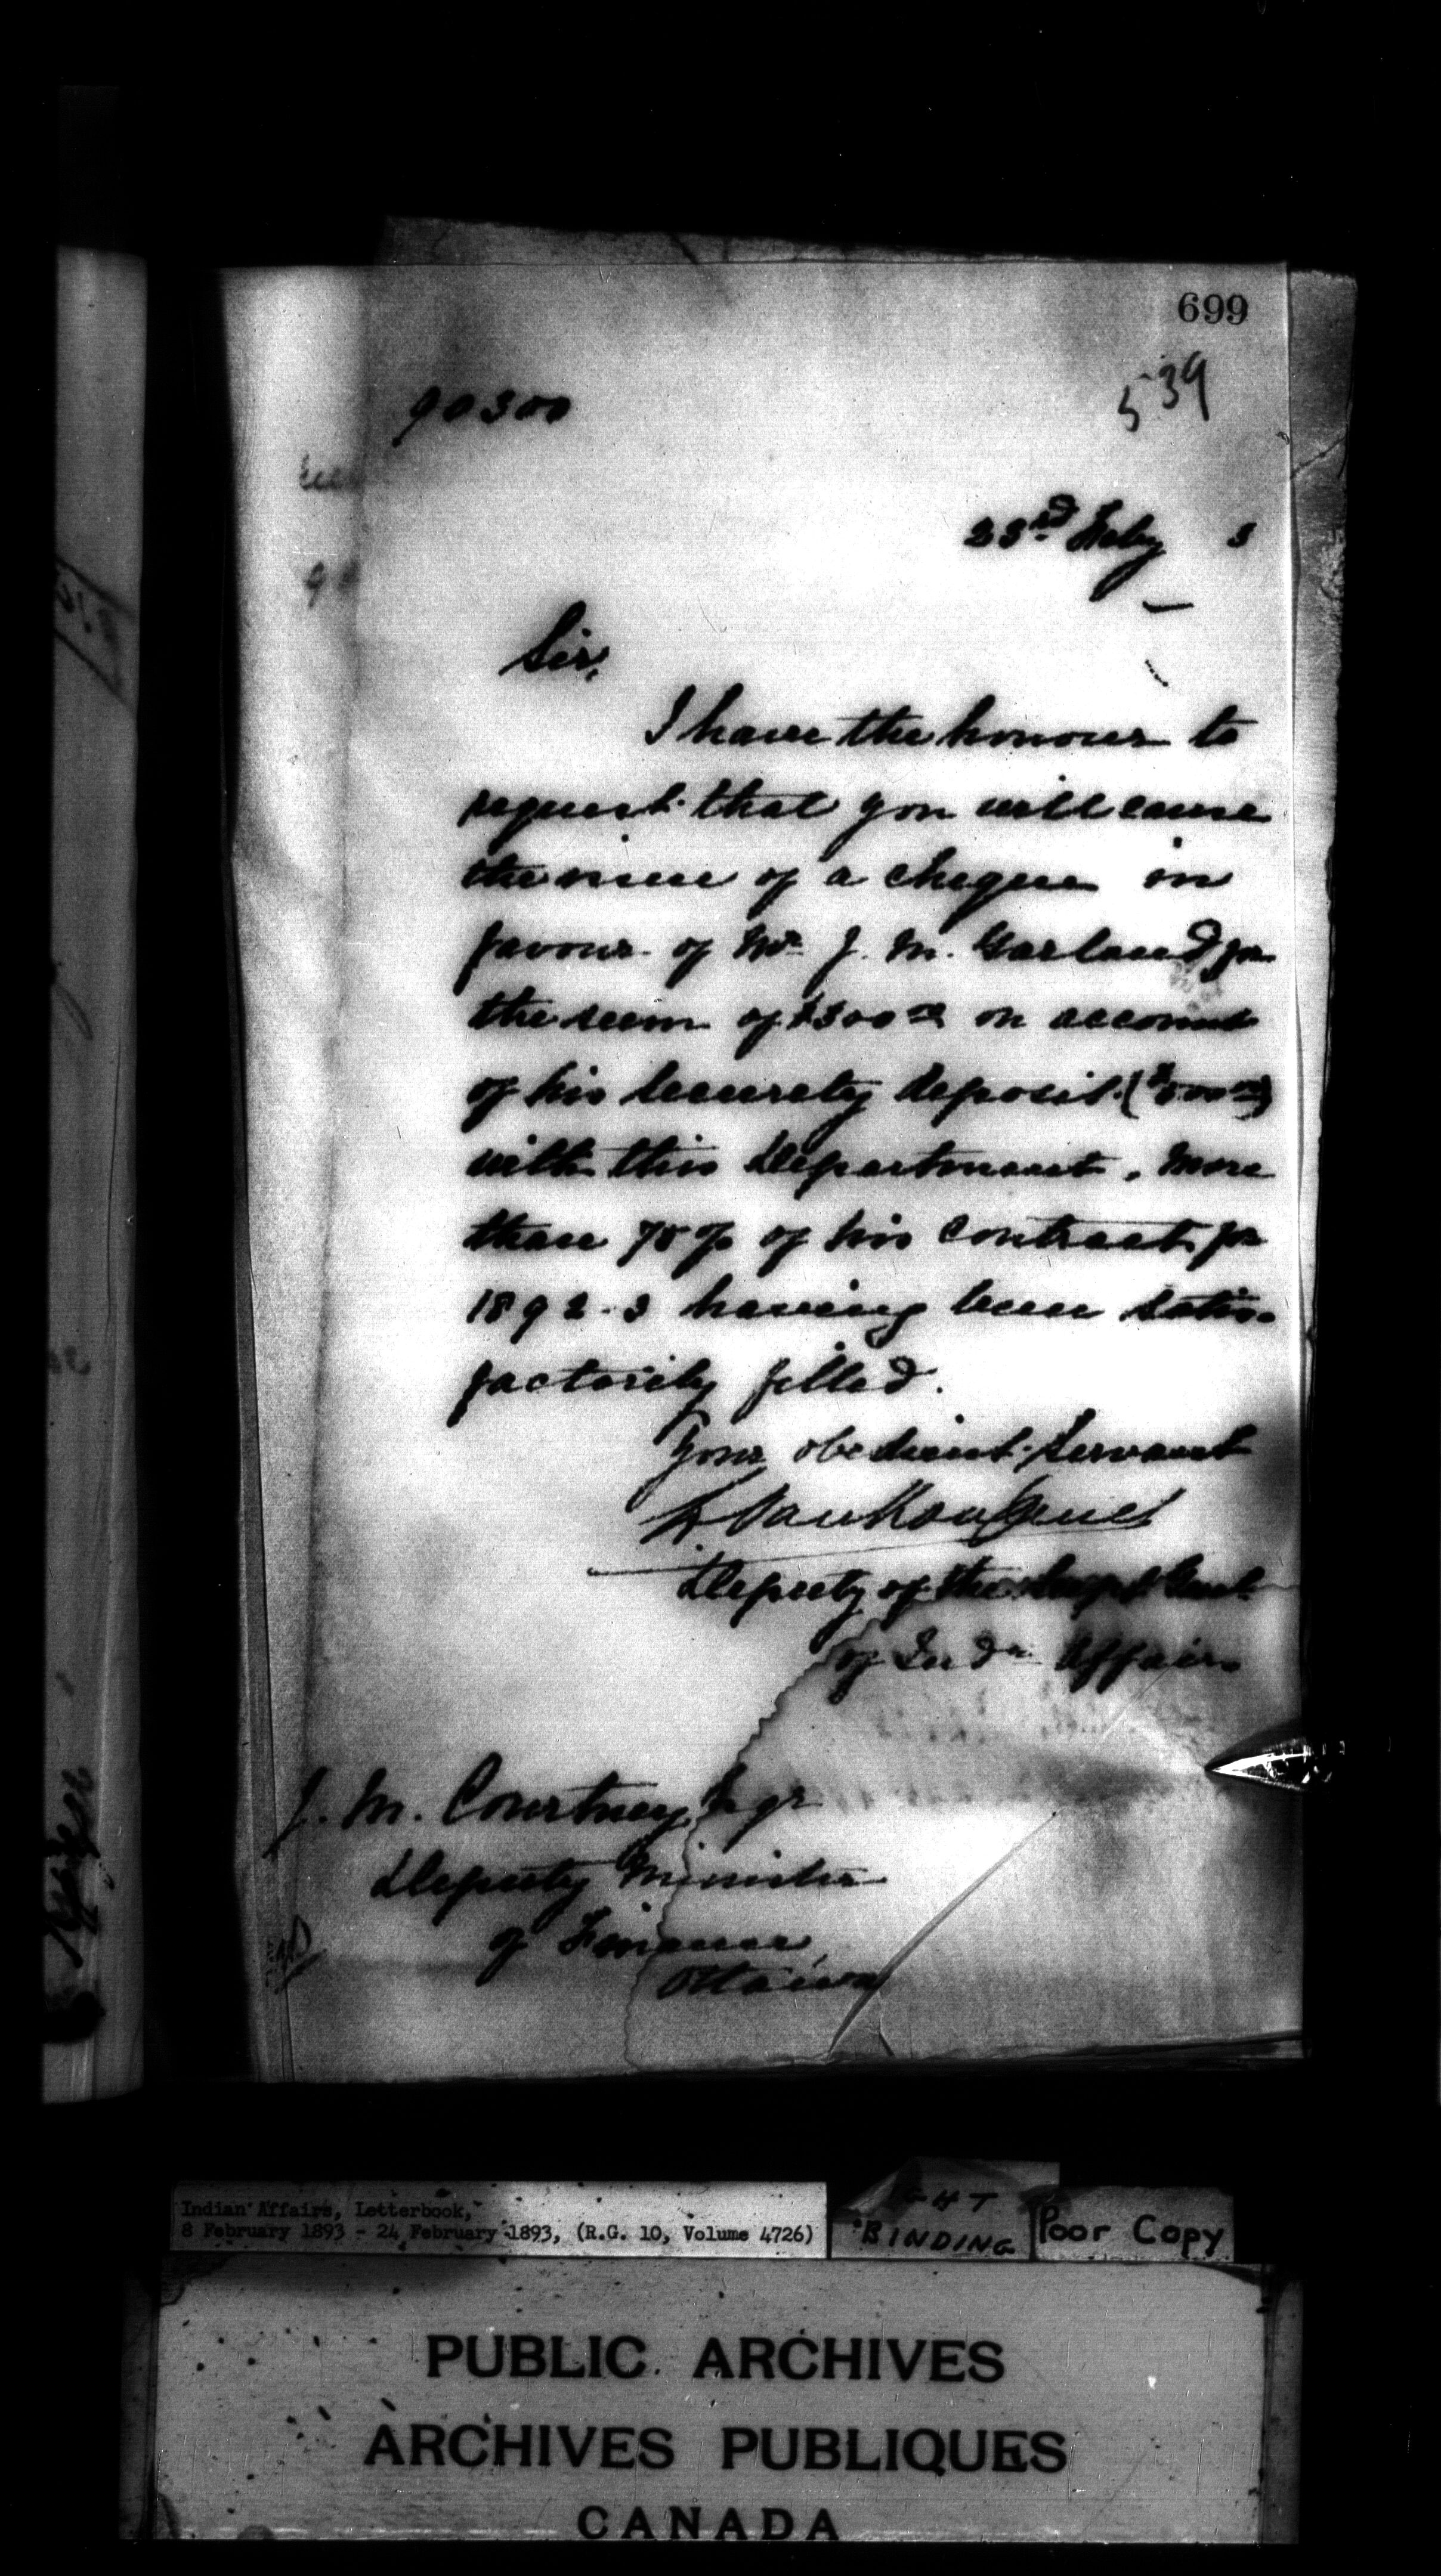 699
539
90300
23rd Feby 3
Sir,
I have the honour to
request that you will cause
the issue of a cheque in
favour of Mr J. M. Garland for
the sum of $300.00 on account
of his Security deposit ($500.00)
with this Department, more
than 75% of his Contract for
1892-3 having been satis-
factorily filled.
Your obedient Servant
L VanKoughnet
Deputy of the Supt Genl
of Indn Affairs
J. M. Courtney Esqr
Deputy Minister
of Finance,
Ottawa
Indian Affairs, Letterbook,
8 February 1893 - 24 February 1893, (R.G. 10, Volume 4726)
GHT
BINDING
Poor Copy
PUBLIC ARCHIVES
ARCHIVES PUBLIQUES
CANADA